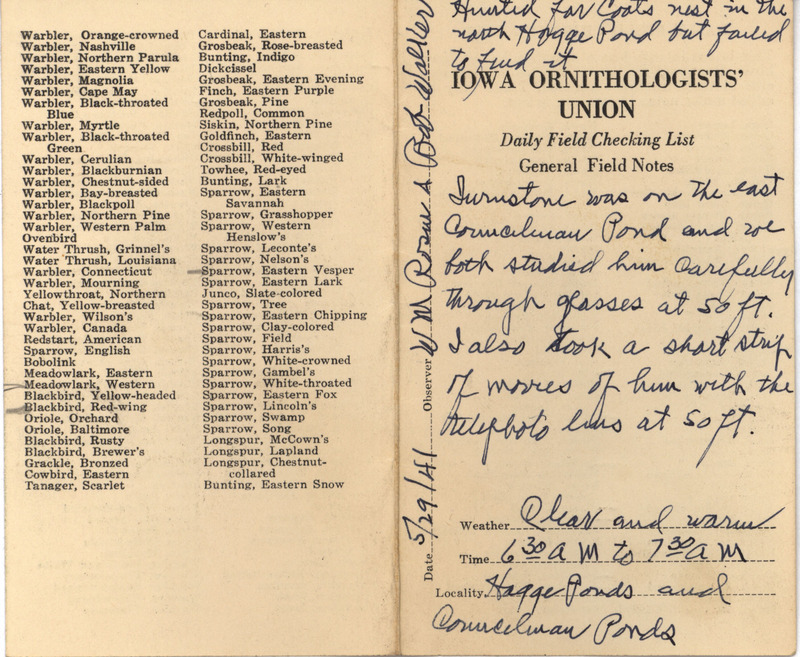 Warbler, Orange-crowned
Warbler, Nashville
Warbler, Northern Parula
Warbler, Eastern Yellow
Warbler, Magnolia
Warbler, Cape May
Warbler, Black-throated
Blue
Warbler, Myrtle
Warbler, Black-throated
Green
Warbler, Cerulian
Warbler, Blackburnian
Warbler, Chestnut-sided
Warbler, Bay-breasted
Warbler, Blackpoll
Warbler, Northern Pine
Warbler, Western Palm
Ovenbird
Water Thrush, Grinnel's
Water Thrush, Louisiana
Warbler, Connecticut
Warbler, Mourning
Yellowthroat, Northern
Chat, Yellow-breasted
Warbler, Wilson's
Warbler, Canada
Redstart, American
Sparrow, English
Bobolink
Meadowlark, Eastern
Meadowlark, Western
Blackbird, Yellow-headed
Blackbird, Red-wing
Oriole, Orchard
Oriole, Baltimore
Blackbird, Rusty
Blackbird, Brewer's
Grackle, Bronzed
Cowbird, Eastern
Tanager, Scarlet
Cardinal, Eastern
Grosbeak, Rose-breasted
Bunting, Indigo
Dickcissel
Grosbeak, Eastern Evening
Finch, Eastern Purple
Grosbeak, Pine
Redpoll, Common
Siskin, Northern Pine
Goldfinch, Eastern
Crossbill, Red
Crossbill, White-winged
Towhee, Red-eyed
Bunting, Lark
Sparrow, Eastern
Savannah
Sparrow, Grasshopper
Sparrow, Western
Henslow's
Sparrow, Leconte's
Sparrow, Nelson's
Sparrow, Eastern Vesper
Sparrow, Eastern Lark
Junco, Slate-colored
Sparrow, Tree
Sparrow, Eastern Chipping
Sparrow, Clay-colored
Sparrow, Field
Sparrow, Harris's
Sparrow, White-crowned
Sparrow, Gambel's
Sparrow, White-throated
Sparrow, Eastern Fox
Sparrow, Lincoln's
Sparrow, Swamp
Sparrow, Song
Longspur, McCown's
Longspur, Lapland
Longspur, Chestnut-
collared
Bunting, Eastern Snow
Date 5/29/41 Observer W M Rosene & Bob Walker
Hunted for Coots nest in the
north Hagge Pond but failed
to find it
IOWA ORNITHOLOGISTS'
UNION
Daily Field Checking List
General Field Notes
Turnstone was on the east
Councilman Pond and we
both studied him carefully
through glasses at 50 ft.
I also took a short strip
of movies of him with the
telephoto lens at 50 ft.
Weather Clear and warm
Time 6 30 A M to 7 30 A M
Locality Hagge Ponds and
Councilman Ponds